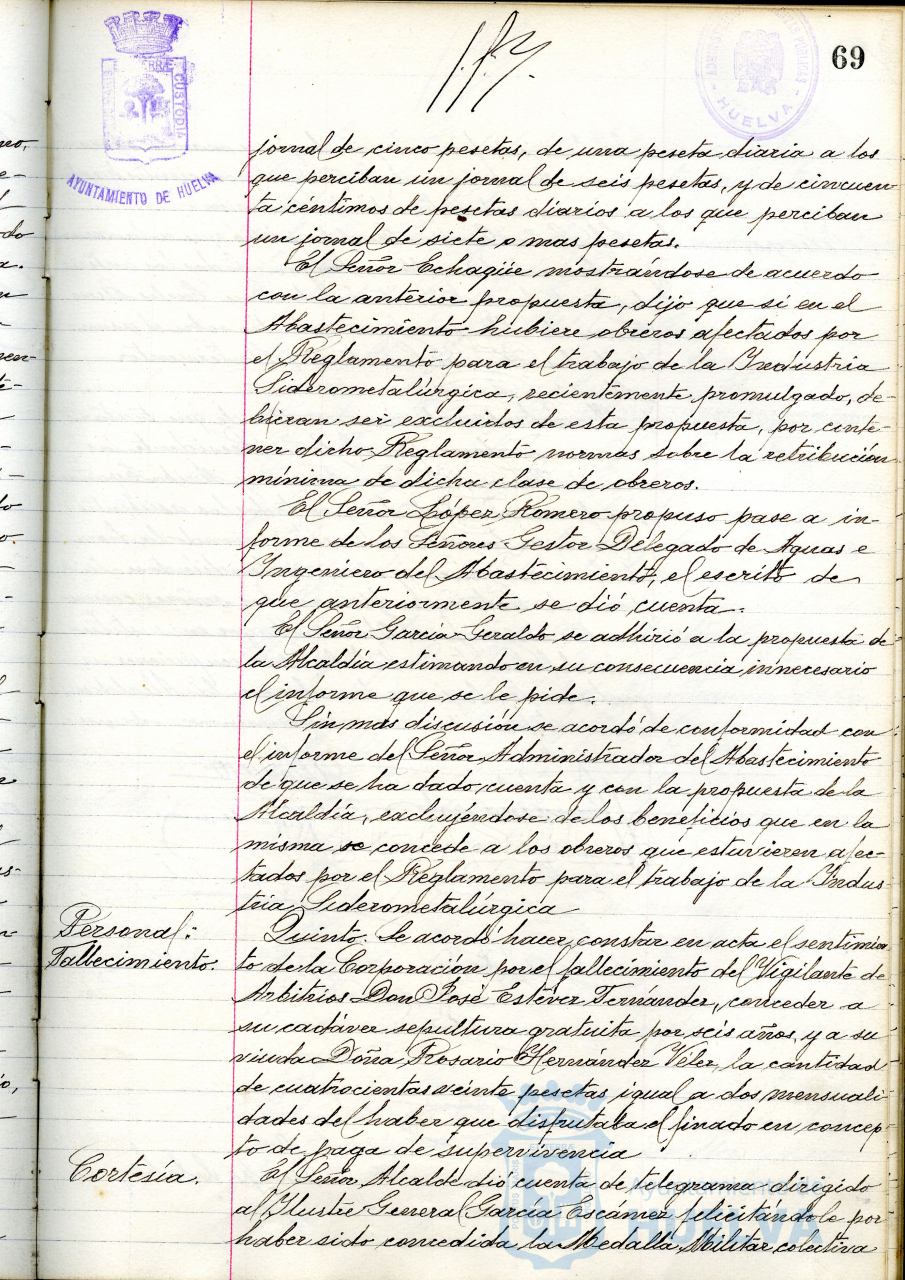 69
CUSTODIA
AYUNTAMIENTO DE HUELVA
HUELVA
jornal de cinco pesetas, de una peseta diaria a los
que perciban un jornal de seis pesetas, y de cincuen
ta céntimos de pesetas diarios a los que perciban
un jornal de siete o mas pesetas.
El Señor Echagüe mostrándose de acuerdo
con la anterior propuesta, dijo que si en el
Abastecimiento hubiere obreros afectados por
el Reglamento para el trabajo de la Industria
Siderometalúrgica, recientemente promulgado, de-
bieran ser excluidos de esta propuesta, por conte-
ner dicho Reglamento normas sobre la retribución
mínima de dicha clase de obreros.
El Señor López Romero propuso pase a in-
forme de los Señores Gestor Delegado de Aguas e
Ingeniero del Abastecimiento, el escrito de
que anteriormente se dió cuenta.
El Señor García Geraldo se adhirió a la propuesta de
la Alcaldía estimando en su consecuencia innecesario
el informe que se le pide.
Sin mas discusión se acordó de conformidad con
el informe del Señor Administrador del Abastecimiento
de que se ha dado cuenta y con la propuesta de la
Alcaldía, excluyéndose de los beneficios que en la
misma se concede a los obreros que estuvieren afec-
tados por el Reglamento para el trabajo de la Indus
tria Siderometalúrgica
Personal:
Fallecimiento.
Quinto. Se acordó hacer constar en acta el sentimien
to de la Corporación por el fallecimiento del Vigilante de
Arbitrios Don José Estévez Fernández, conceder a
su cadáver sepultura gratuita por seis años, y a su
viuda Doña Rosario Hernández Vélez, la cantidad
de cuatrocientas veinte pesetas igual a dos mensuali-
dades del haber que disfrutaba el finado en concep-
to de paga de supervivencia
Cortesía.
El Señor Alcalde dió cuenta de telegrama dirigido
al Ilustre General García Escámez felicitándole por
haber sido concedida la Medalla Militar colectiva
Ayuntamiento de
HUELVA